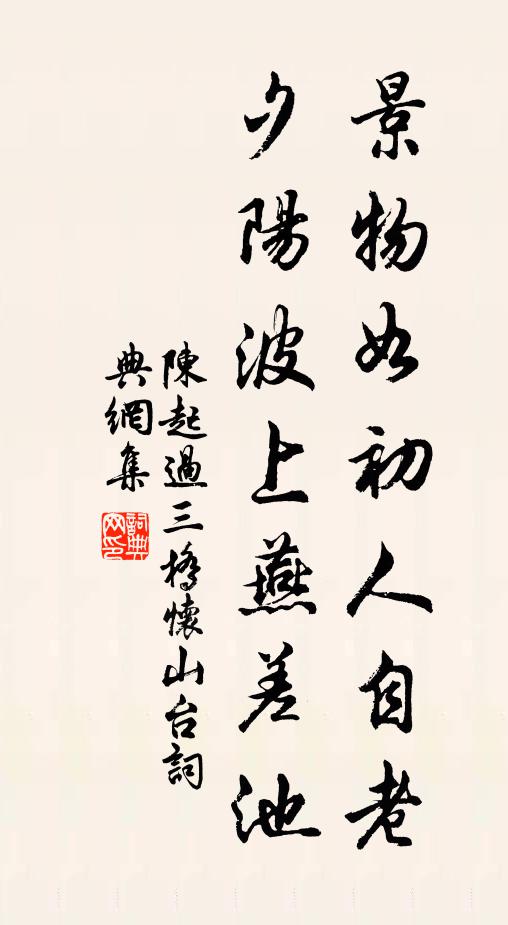 景物如初人自老
夕陽波上燕差池
陳起過三橋懷山台詞
典網集
詞典
网印